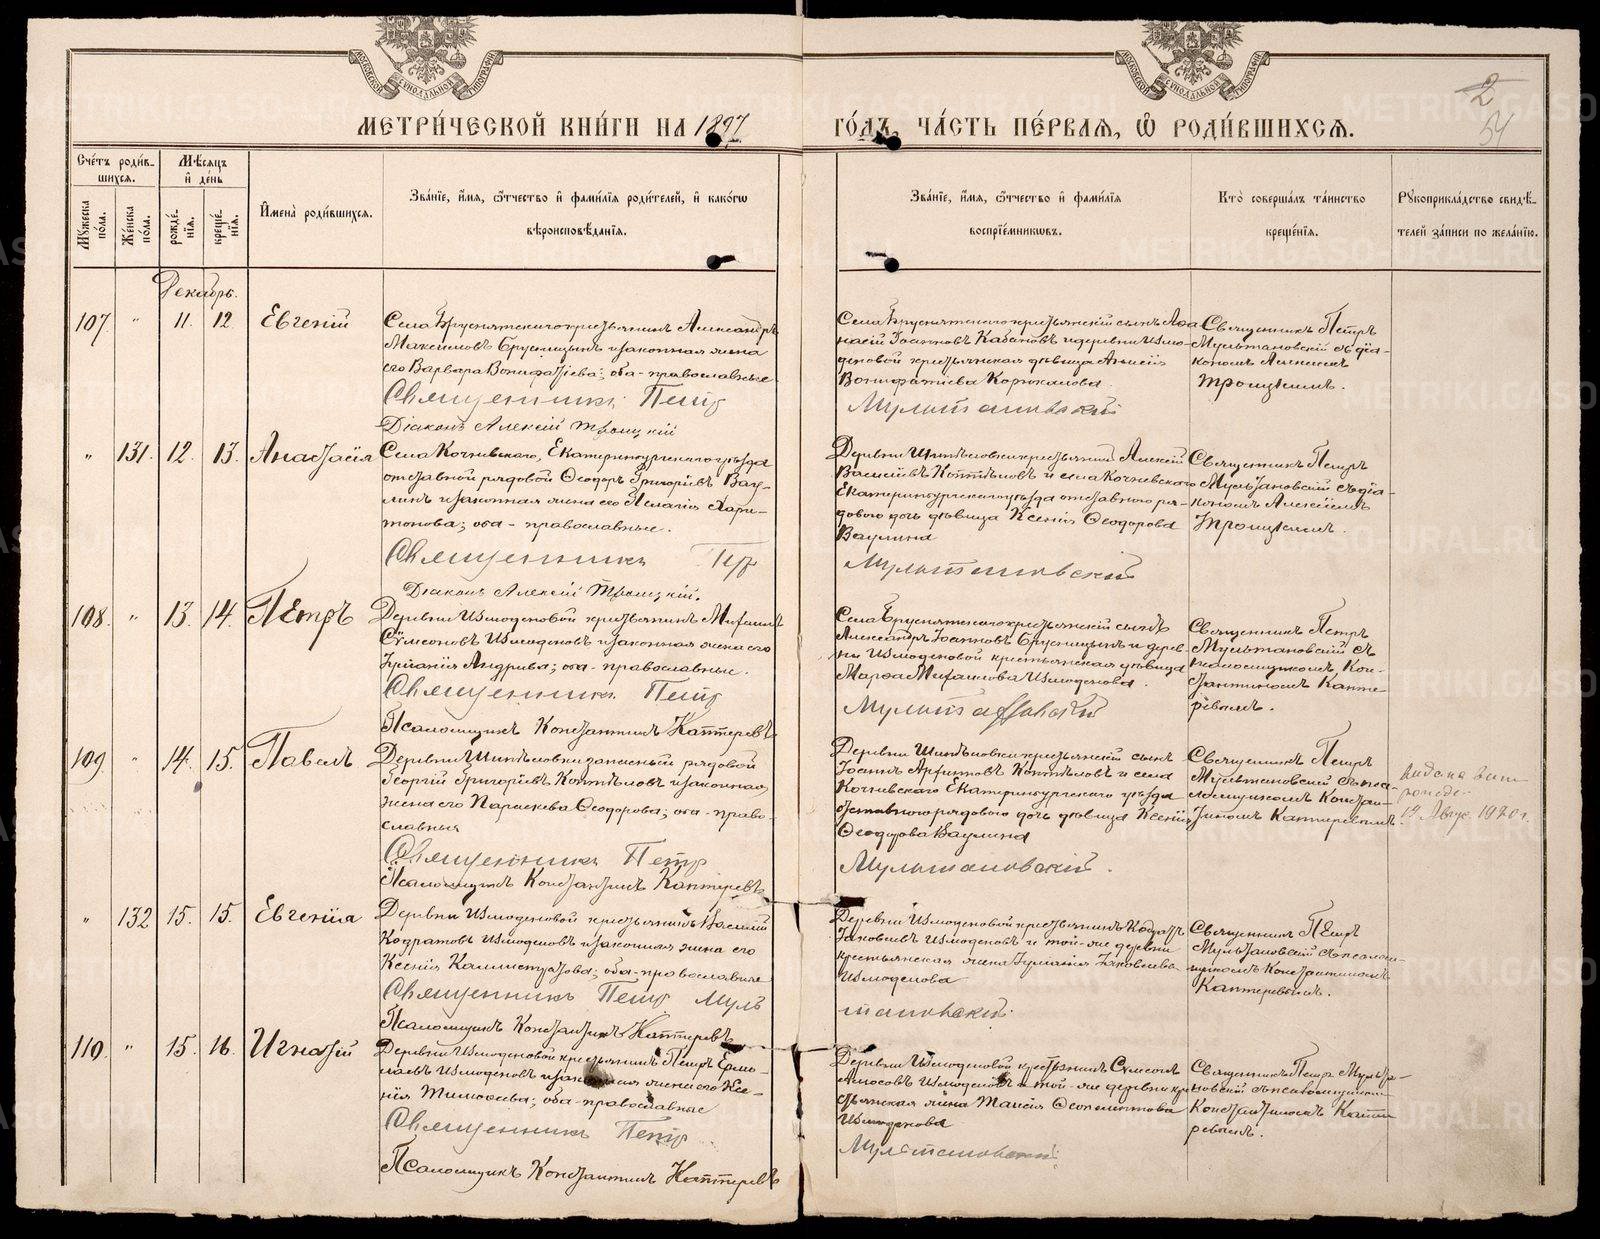 МОСКОВСКОЙ СѴНОДАЛЬНОЙ ТИПОГРАФІИ
МОСКОВСКОЙ СѴНОДАЛЬНОЙ ТИПОГРАФІИ
2
54
МЕТРИ́ЧЕСКОЙ КНИ́ГИ НА 1897 ГО́ДЪ, ЧА́СТЬ ПЕ́РВАЯ, Ѡ РОДИ́ВШИХСЯ.
Сче́тъ роди́в-
шихся.
Му́жеска по́ла.
Же́нска по́ла.
Мѣ́сяцъ
и де́нь
рожде́нія.
креще́нія.
Имена̀ роди́вшихся.
Зва́ніе, и́мя, ѻ́тчество и фами́лія роди́телей, и како́гѡ
вѣроисповѣ́данія.
Зва́ніе, и́мя, ѻ́тчество и фами́лія
воспріе́мниковъ.
Кто̀ соверша́лъ та́инство
креще́нія.
Рукоприкла́дство свидѣ́-
телей за́писи по жела́нію.
Декабрь.
107 " 11. 12 Евгеній
Села Бруснятскаго крестьянинъ Александръ
Максимовъ Брусницынъ и законная жена
его Варвара Вонифатіева; оба - православные
Священникъ Петр
Діаконъ Алексій Троицкій
Села Бруснятскаго крестьянскій сынъ Афа-
насій Іоанновъ Кабановъ и деревни Измо-
деновой крестьянская дѣвица Анисія
Вонифатіева Корякова.
Мультановскій
Священникъ Петръ
Мультановскій съ діа-
кономъ Алексіемъ
Троицкимъ.
" 131. 12. 13. Анастасія
Села Кочневскаго, Екатеринбургскаго уѣзда
отставной рядовой Ѳеодоръ Григорьевъ Вау-
линъ и законная жена его Пелагія Хари-
тонова; оба - православные.
Священникъ Петр
Діаконъ Алексій Троицкій.
Деревни Шипѣловки крестьянинъ Алексій
Васильевъ Коптѣловъ и села Кочневскаго
Екатеринбургскаго уѣзда отставнаго ря-
доваго дочь дѣвица Ксенія Ѳеодорова
Ваулина
Мультановскій
Священникъ Петръ
Мультановскій съ діа-
кономъ Алексіемъ
Троицкимъ.
108. " 13. 14. Петръ
Деревни Измоденовой крестьянинъ Михаилъ
Сѵмеоновъ Измоденовъ и законная жена его
Іуліанія Андреева; оба - православные.
Священникъ Петр
Псаломщикъ Константинъ Каптеревъ
Села Бруснятскаго крестьянскій сынъ
Александръ Іоанновъ Брусницынъ и дерев-
ни Измоденовой крестьянская дѣвица
Марѳа Михаилова Измоденова.
Мультановскій
Священникъ Петръ
Мультановскій съ
псаломщикомъ Кон-
стантиномъ Капте-
ревымъ.
109. " 14. 15. Павелъ
Деревни Шипѣловки запасный рядовой
Георгій Григорьевъ Коптѣловъ и законная
жена его Параскева Ѳеодорова; оба - право-
славные
Священникъ Петр
Псаломщикъ Константинъ Каптеревъ
Деревни Шипѣловки крестьянскій сынъ
Іоаннъ Архиповъ Коптѣловъ и села
Кочневскаго Екатеринбургскаго уѣзда
отставнаго рядоваго дочь дѣвица Ксенія
Ѳеодорова Ваулина
Мультановскій.
Священникъ Петръ
Мультановскій съ пса-
ломщикомъ Констан-
тиномъ Каптеревымъ.
12 Авгус. 1920 г.
" 132 15. 15. Евгенія
Деревни Измоденовой крестьянинъ Василій
Кодратовъ Измоденовъ и законная жена его
Ксенія Каллистратова; оба - православные
Священникъ Петр Муль
Псаломщикъ Константинъ Каптеревъ
Деревни Измоденовой крестьянинъ Кодратъ
Іаковлевъ Измоденовъ и той-же деревни
крестьянская жена Іуліанія Іаковлева
Измоденова
тановскій.
Священникъ Петръ
Мультановскій съ псалом-
щикомъ Константиномъ
Каптеревымъ.
110. " 15. 16. Игнатій
Деревни Измоденовой крестьянинъ Петръ Ермо-
лаевъ Измоденовъ и законная жена его Ксе-
нія Тимоѳеева; оба - православные
Священникъ Петр
Псаломщикъ Константинъ Каптеревъ
Деревни Измоденовой крестьянинъ Сѵмеонъ
Амосовъ Измоденовъ и той-же деревни кре-
стьянская жена Таисія Ѳеопемптова
Измоденова
Мультановскій
Священникъ Петръ Мульта-
новскій съ псаломщикомъ
Константиномъ Капте-
ревымъ.
METRIKI.GASO-URAL.RU